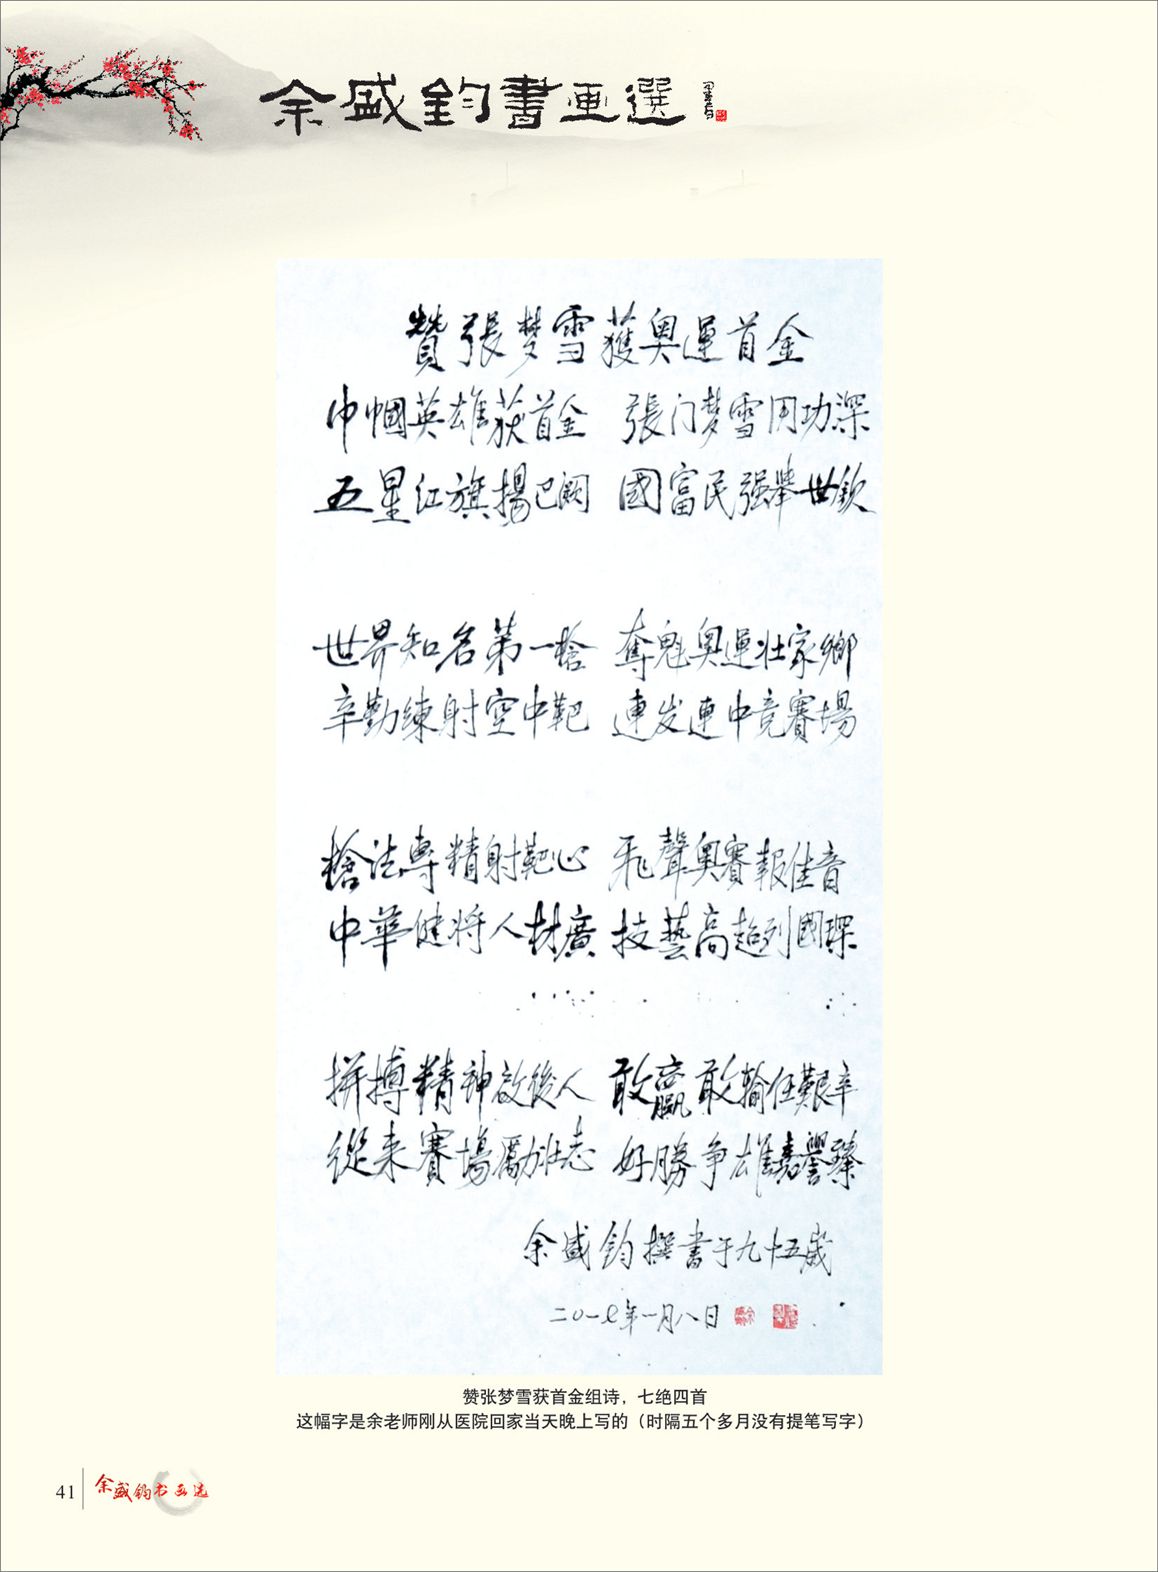 余盛鈞書画選
贊張梦雪獲奥運首金
巾帼英雄获首金 張门梦雪用功深
五星红旗揚巴阙 國富民强舉世欽
世界知名第一槍 奪魁奥運壮家鄉
辛勤練射空中靶 連发連中竞賽場
槍法專精射靶心 飛聲奥賽報佳音
中華健将人材廣 技藝高超列國琛
拼搏精神啟後人 敢贏敢輸任艱辛
從来賽場勵壮志 好勝争雄嘉譽臻
余盛鈞撰書于九十五歲
二〇一七年一月八日
赞张梦雪获首金组诗，七绝四首
这幅字是余老师刚从医院回家当天晚上写的（时隔五个多月没有提笔写字）
41 余盛钧书画选